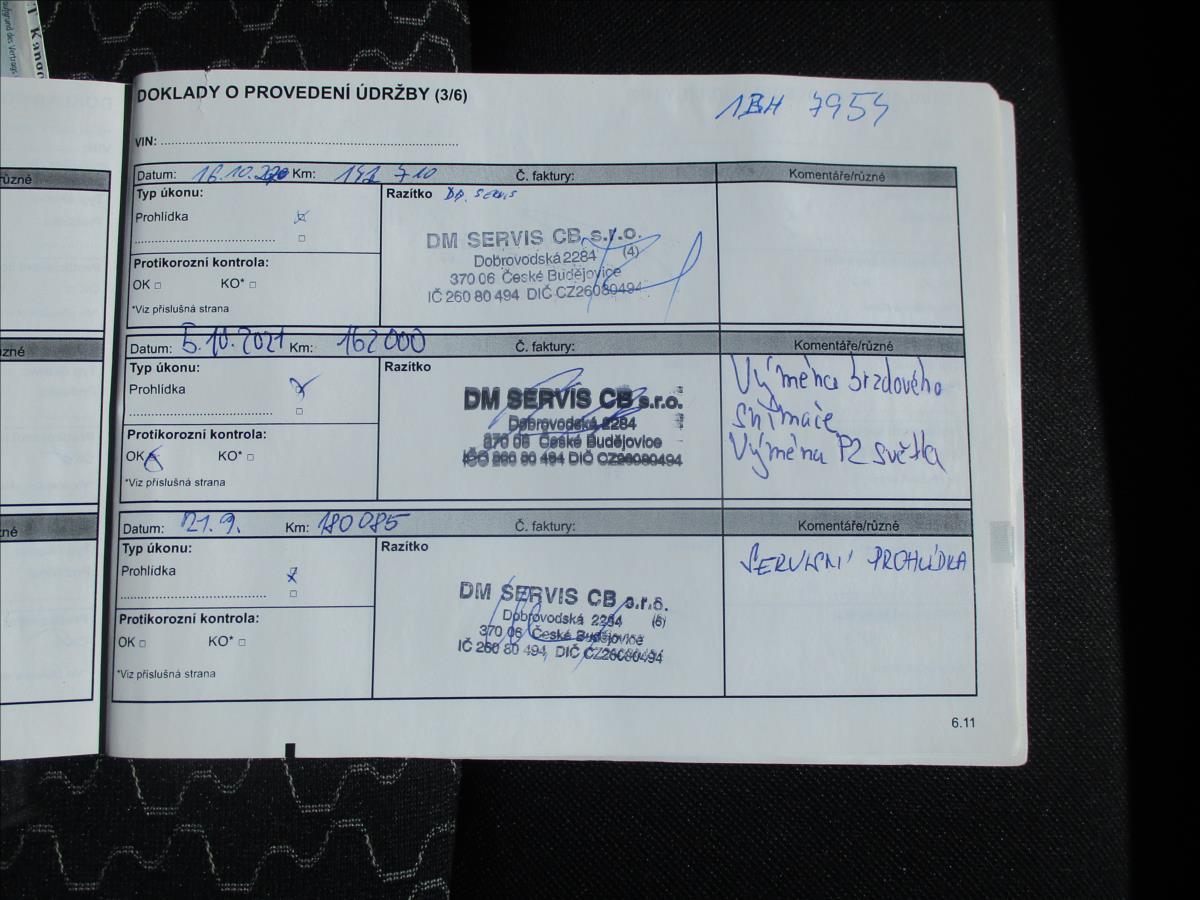 DOKLADY O PROVEDENÍ ÚDRŽBY (3/6)
1BH 7954
VIN:
Datum: 16.10. Km: 142 710 Č. faktury: Komentáře/různé
Typ úkonu:
Razítko DM. SERVIS
Prohlídka
DM SERVIS CB s.r.o.
Dobrovodská 2284 (4)
370 06 České Budějovice
IČ 260 80 494 DIČ CZ26080494
Protikorozní kontrola:
OK KO*
*Viz příslušná strana
Datum: 5.10.2021 Km: 162000 Č. faktury: Komentáře/různé
Typ úkonu:
Razítko
Prohlídka
DM SERVIS CB s.r.o.
Dobrovodská 2284
370 06 České Budějovice
IČO 260 80 494 DIČ CZ26080494
Výměna brzdového
snímače
Výměna PZ světla
Protikorozní kontrola:
OK KO*
*Viz příslušná strana
Datum: 21.9. Km: 180085 Č. faktury: Komentáře/různé
Typ úkonu:
Razítko
Prohlídka
DM SERVIS CB s.r.o.
Dobrovodská 2284 (6)
370 06 České Budějovice
IČ 260 80 494, DIČ CZ26080494
SERVISNÍ PROHLÍDKA
Protikorozní kontrola:
OK KO*
*Viz příslušná strana
6.11